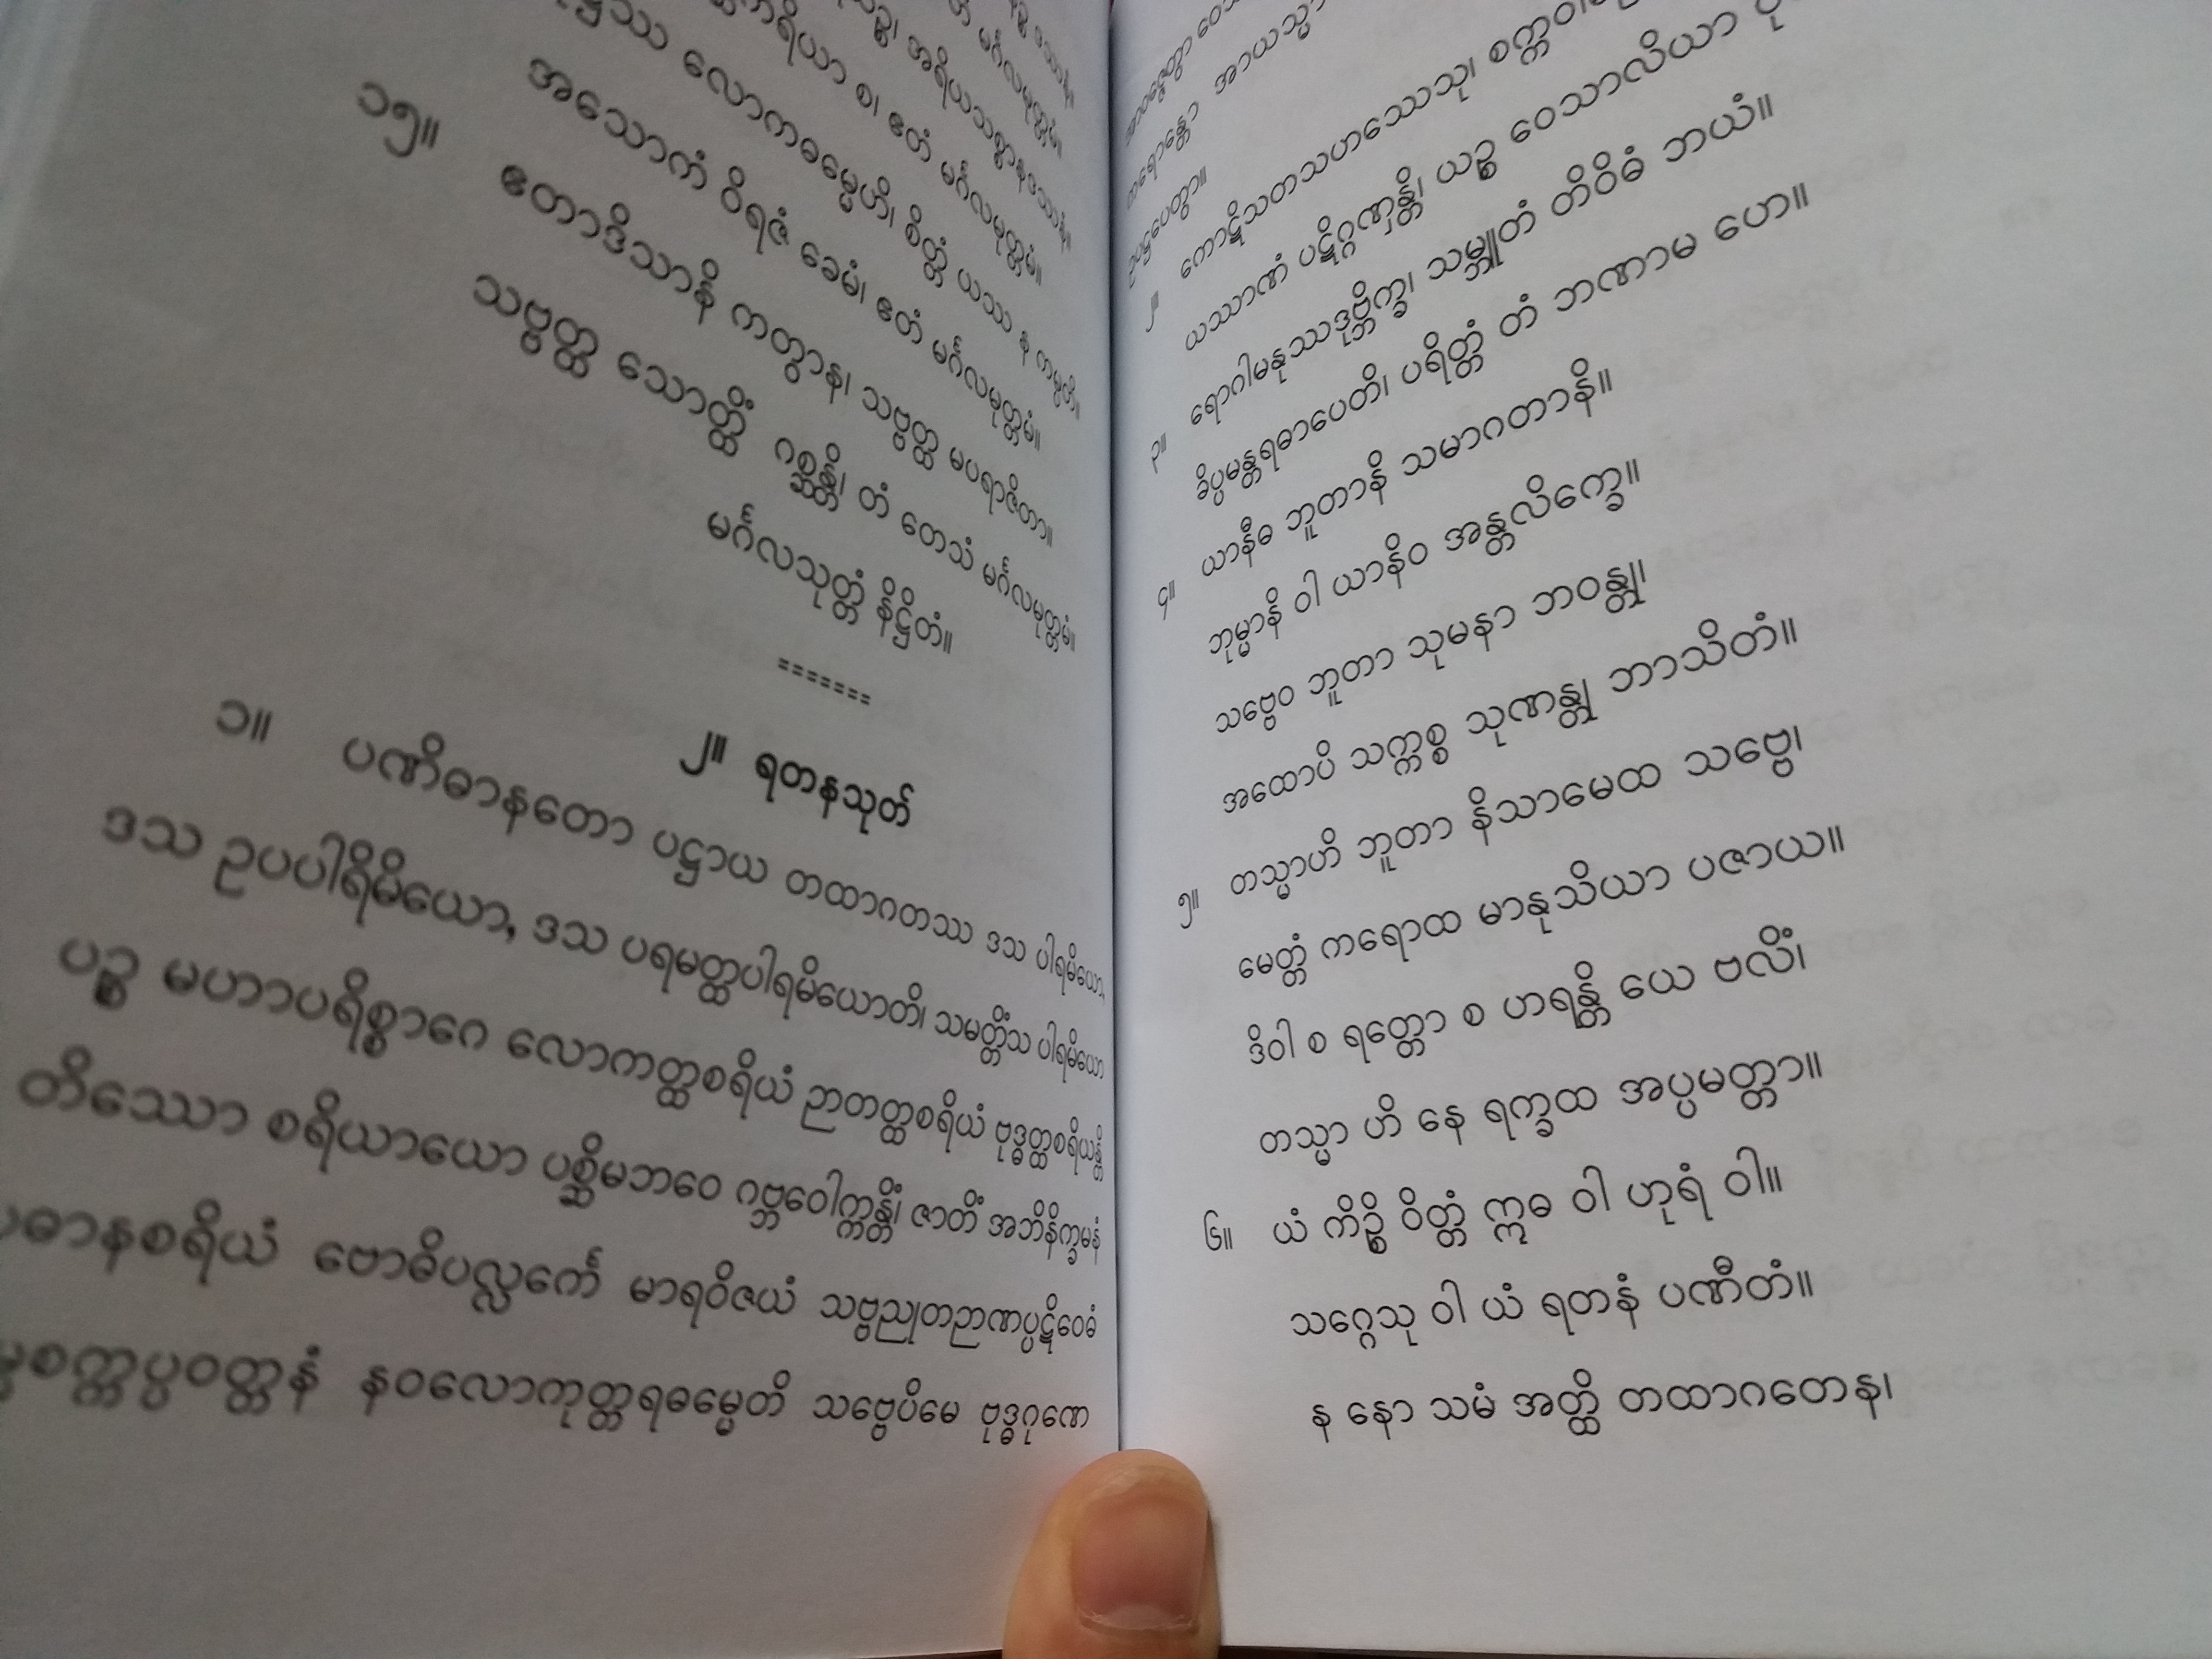 အရိယသစ္စာနဒဿနံ။
စ၊ ဧတံ မင်္ဂလမုတ္တမံ။
လောကဓမ္မေဟိ၊ စိတ္တံ ယဿ န ကမ္ပတိ။
အသောကံ ဝိရဇံ ခေမံ၊ ဧတံ မင်္ဂလမုတ္တမံ။
၁၅။ ဧတာဒိသာနိ ကတွာန၊ သဗ္ဗတ္ထ မပရာဇိတာ။
သဗ္ဗတ္ထ သောတ္ထိံ ဂစ္ဆန္တိ၊ တံ တေသံ မင်္ဂလမုတ္တမံ။
မင်္ဂလသုတ္တံ နိဋ္ဌိတံ။
=======
၂။ ရတနသုတ်
၁။ ပဏိဓာနတော ပဋ္ဌာယ တထာဂတဿ ဒသ ပါရမိယော,
ဒသ ဥပပါရမိယော, ဒသ ပရမတ္ထပါရမိယောတိ၊ သမတ္တိံသ ပါရမိယော
ပဉ္စ မဟာပရိစ္စာဂေ လောကတ္ထစရိယံ ဉာတတ္ထစရိယံ ဗုဒ္ဓတ္ထစရိယန္တိ
တိဿော စရိယာယော ပစ္ဆိမဘဝေ ဂဗ္ဘဝေါက္ကန္တိံ၊ ဇာတိံ အဘိနိက္ခမနံ
ပဓာနစရိယံ ဗောဓိပလ္လင်္ကေ မာရဝိဇယံ သဗ္ဗညုတဉာဏပ္ပဋိဝေဓံ
နဝလောကုတ္တရဓမ္မေတိ သဗ္ဗေပိမေ ဗုဒ္ဓဂုဏေ
၂။ ကောဋိသတသဟဿေသု၊
ယဿာဏံ ပဋိဂ္ဂဏှန္တိ၊ ယဉ္စ ဝေသာလိယာ
ရောဂါမနုဿဒုဗ္ဘိက္ခ၊ သမ္ဘူတံ တိဝိဓံ ဘယံ။
ခိပ္ပမန္တရဓာပေတိ၊ ပရိတ္တံ တံ ဘဏာမ ဟေ။
၃။ ယာနီဓ ဘူတာနိ သမာဂတာနိ။
ဘုမ္မာနိ ဝါ ယာနိဝ အန္တလိက္ခေ။
၄။ သဗ္ဗေဝ ဘူတာ သုမနာ ဘဝန္တု၊
အထောပိ သက္ကစ္စ သုဏန္တု ဘာသိတံ။
၅။ တသ္မာဟိ ဘူတာ နိသာမေထ သဗ္ဗေ၊
မေတ္တံ ကရောထ မာနုသိယာ ပဇာယ။
ဒိဝါ စ ရတ္တော စ ဟရန္တိ ယေ ဗလိံ၊
တသ္မာ ဟိ နေ ရက္ခထ အပ္ပမတ္တာ။
၆။ ယံ ကိဉ္စိ ဝိတ္တံ ဣဓ ဝါ ဟုရံ ဝါ။
သဂ္ဂေသု ဝါ ယံ ရတနံ ပဏီတံ။
န နော သမံ အတ္ထိ တထာဂတေန၊